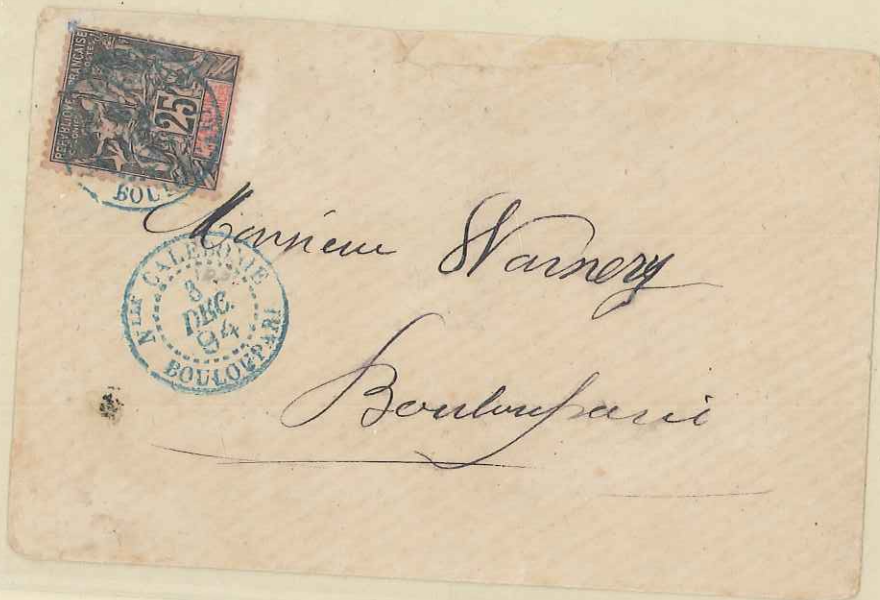 REPUBLIQUE FRANÇAISE
COLONIES POSTES
25
BOUL
Monsieur Warnery
NLLE CALEDONIE
3
DEC.
94
BOULOUPARI
Bouloupari